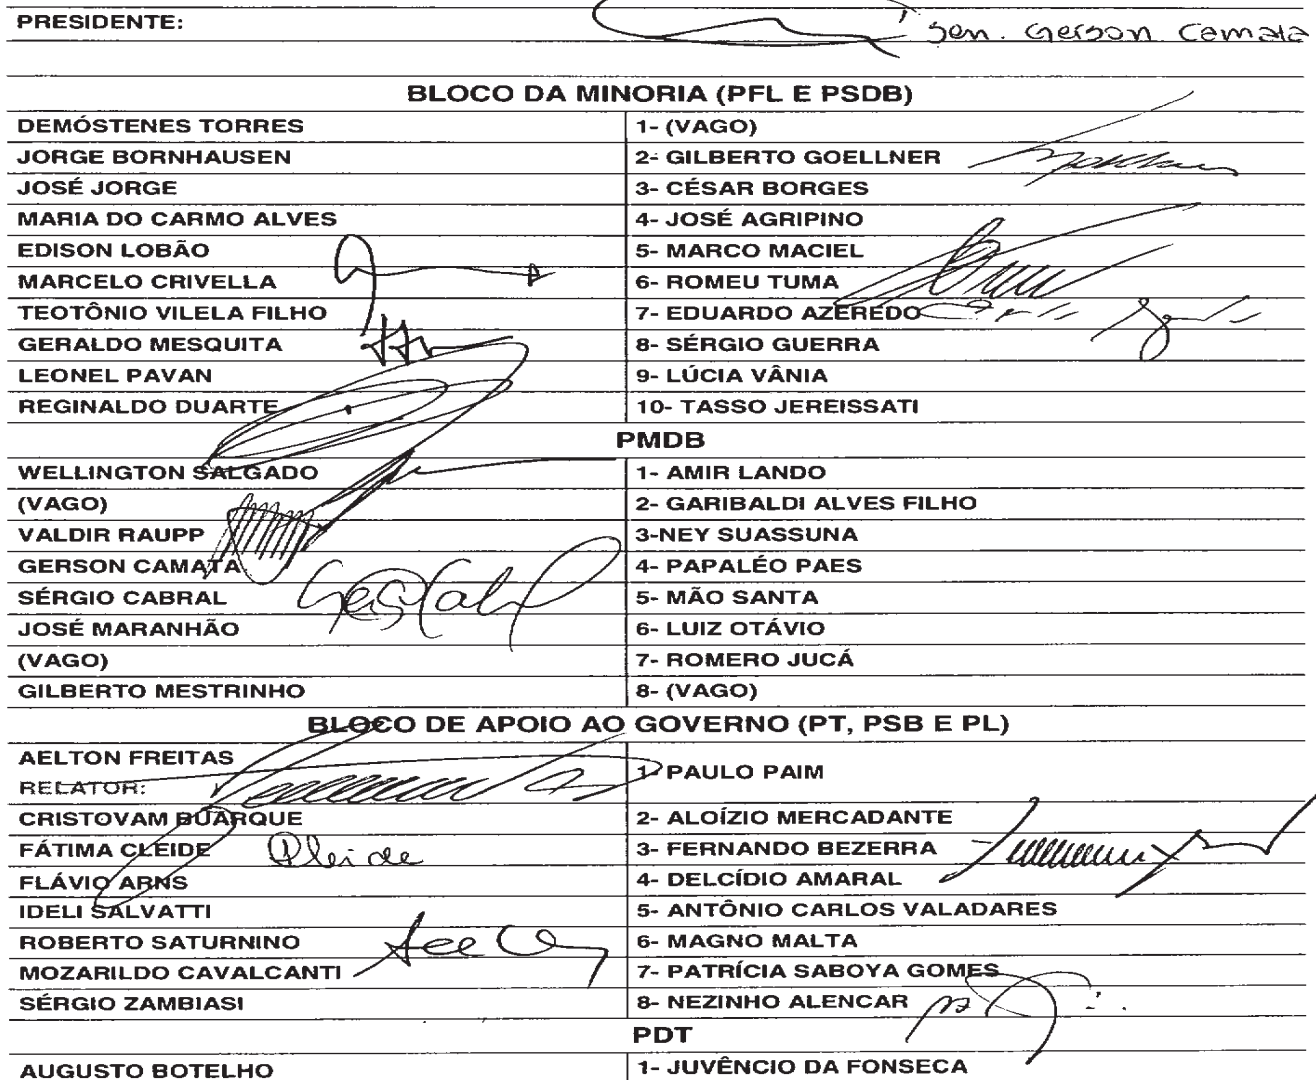 PRESIDENTE: Sen. Gerson Camata
BLOCO DA MINORIA (PFL E PSDB)
DEMÓSTENES TORRES 1- (VAGO)
JORGE BORNHAUSEN 2- GILBERTO GOELLNER
JOSÉ JORGE 3- CÉSAR BORGES
MARIA DO CARMO ALVES 4- JOSÉ AGRIPINO
EDISON LOBÃO 5- MARCO MACIEL
MARCELO CRIVELLA 6- ROMEU TUMA
TEOTÔNIO VILELA FILHO 7- EDUARDO AZEREDO
GERALDO MESQUITA 8- SÉRGIO GUERRA
LEONEL PAVAN 9- LÚCIA VÂNIA
REGINALDO DUARTE 10- TASSO JEREISSATI
PMDB
WELLINGTON SALGADO 1- AMIR LANDO
(VAGO) 2- GARIBALDI ALVES FILHO
VALDIR RAUPP 3-NEY SUASSUNA
GERSON CAMATA 4- PAPALÉO PAES
SÉRGIO CABRAL 5- MÃO SANTA
JOSÉ MARANHÃO 6- LUIZ OTÁVIO
(VAGO) 7- ROMERO JUCÁ
GILBERTO MESTRINHO 8- (VAGO)
BLOCO DE APOIO AO GOVERNO (PT, PSB E PL)
AELTON FREITAS
RELATOR: 1- PAULO PAIM
CRISTOVAM BUARQUE 2- ALOÍZIO MERCADANTE
FÁTIMA CLEIDE Cleide 3- FERNANDO BEZERRA
FLÁVIO ARNS 4- DELCÍDIO AMARAL
IDELI SALVATTI 5- ANTÔNIO CARLOS VALADARES
ROBERTO SATURNINO 6- MAGNO MALTA
MOZARILDO CAVALCANTI 7- PATRÍCIA SABOYA GOMES
SÉRGIO ZAMBIASI 8- NEZINHO ALENCAR
PDT
AUGUSTO BOTELHO 1- JUVÊNCIO DA FONSECA